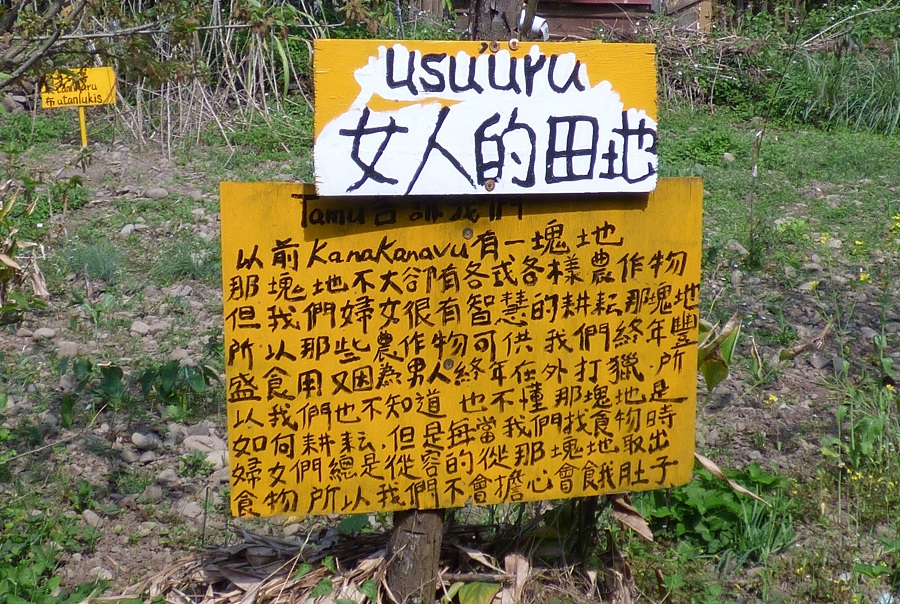 usu'uru
女人的田地
Tamu告訴我們
以前KanaKanavu有一塊地
那塊地不大卻有各式各樣農作物
但我們婦女很有智慧的耕耘那塊地
所以那些農作物可供我們終年豐
盛食用又因為男人終年在外打獵.所
以我們也不知道也不懂那塊地是
如何耕耘.但是每當我們找食物時
婦女們總是從容的從那塊地取出
食物所以我們不會擔心會餓肚子
布utanlukis